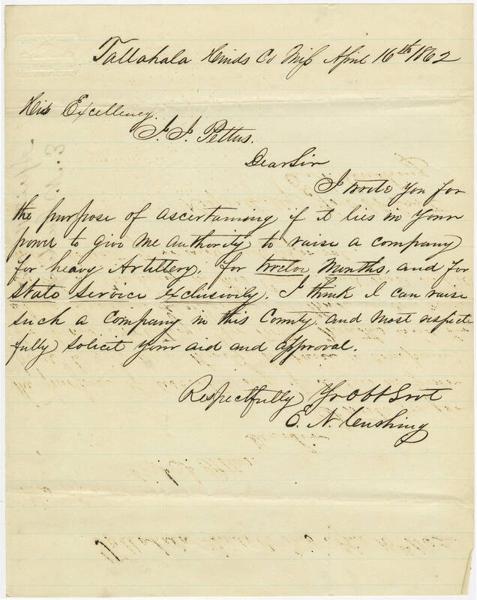 Tallahala Hinds Co Miſs April 16th 1862
His Excellency.
J. J. Pettus.
Dear Sir
I wrote you for
the purpose of ascertaining if it lies in your
power to give me authority to raise a company
for heavy Artillery, for twelve Months, and for
State Service Exclusively. I think I can raise
such a company in this County and most respect
fully solicit your aid and approval.
Respectfully Yr Obt Svt
E. N. Cushing